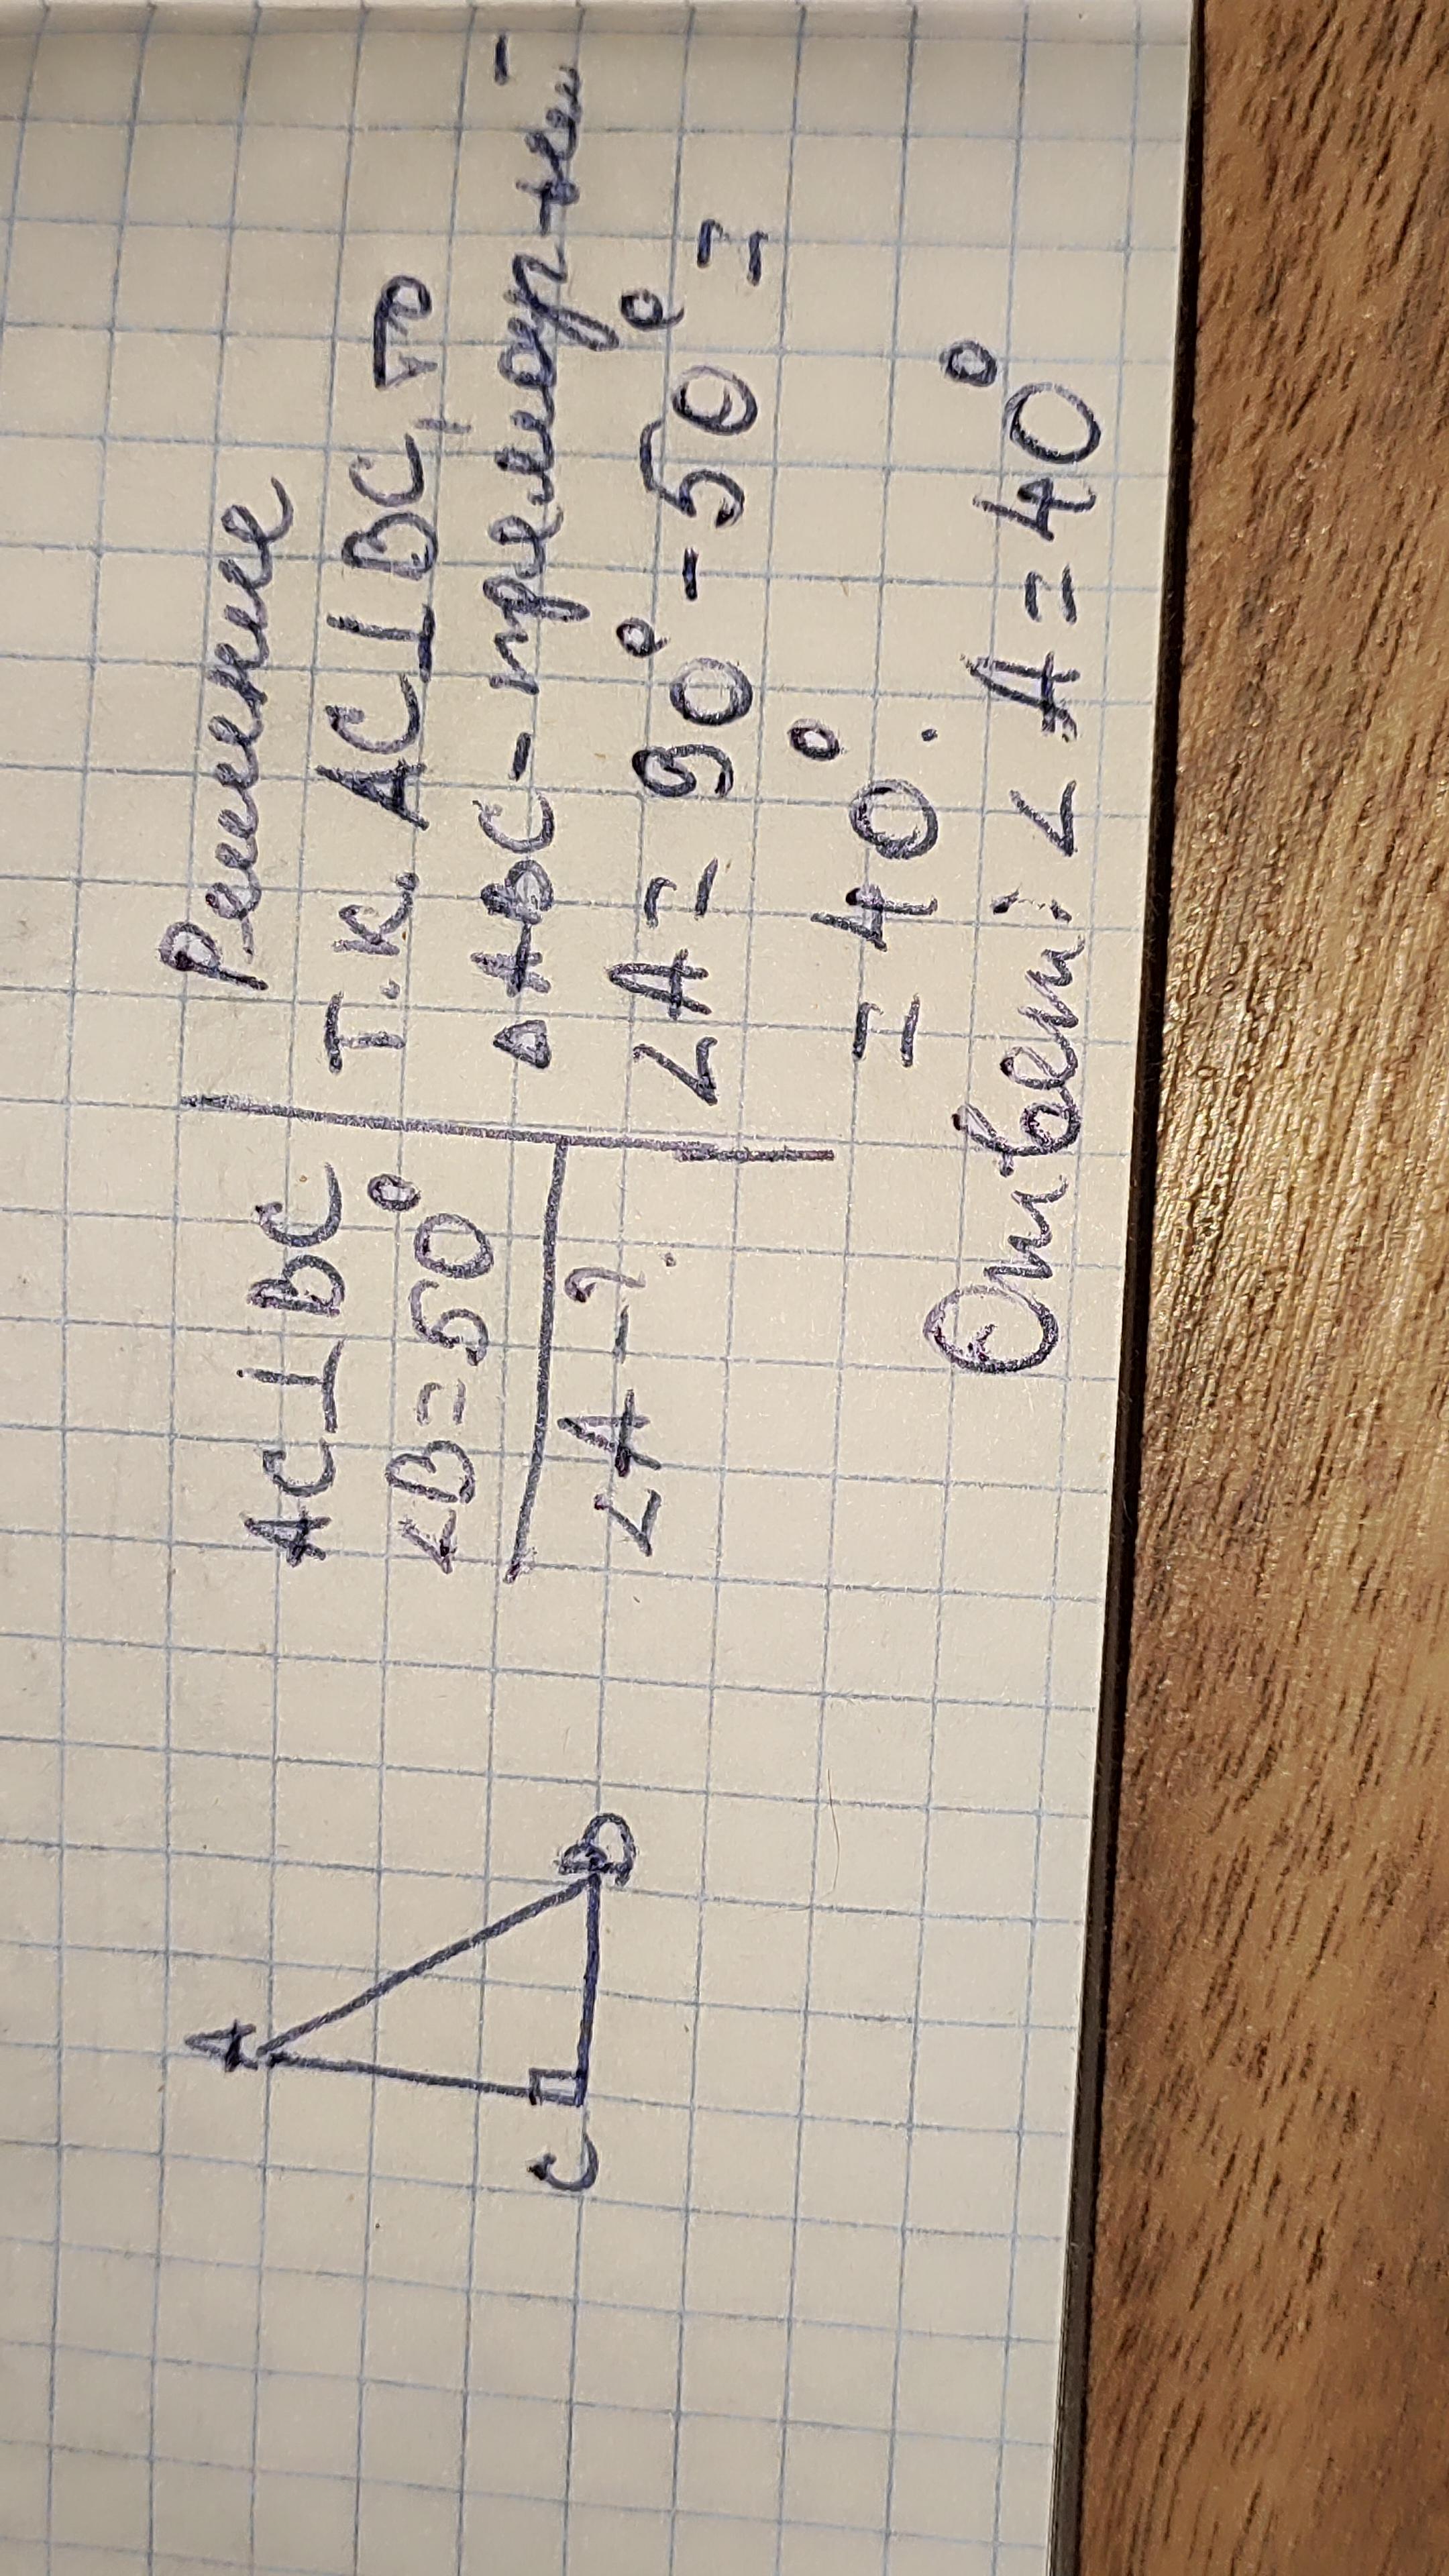 A
C
B
AC⊥BC
∠B=50°
∠A-?
Решение
Т.к. AC⊥BC, то
△ABC-прямоуг-ный-
∠A=90°-50°=
=40°.
Ответ: ∠A=40°